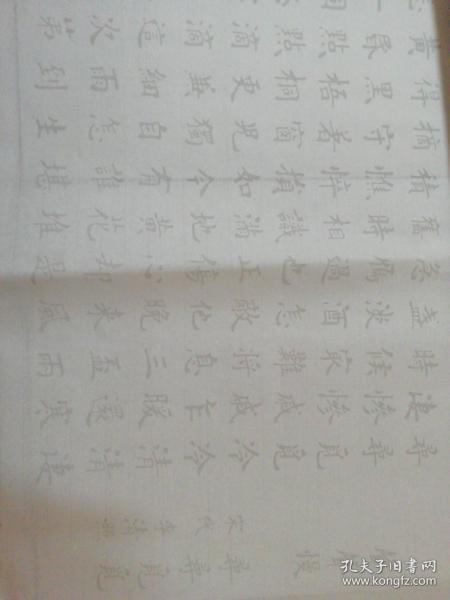 慢
尋尋覓覓
宋代
李清照
尋尋覓覓冷冷清清淒
淒慘慘戚戚乍暖還寒
時候最難將息三盃兩
盞淡酒怎敵他晚來風
急雁過也正傷心却是
舊時相識滿地黃花堆
積憔悴損如今有誰堪
摘守著窗兒獨自怎生
得黑梧桐更兼細雨到
黃昏點點滴滴這次第
孔夫子旧书网
www.kongfz.com